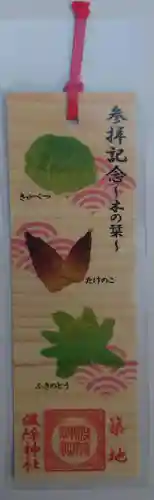 参拝記念～木の栞～
きゃべつ
たけのこ
ふきのとう
築地
波除神社